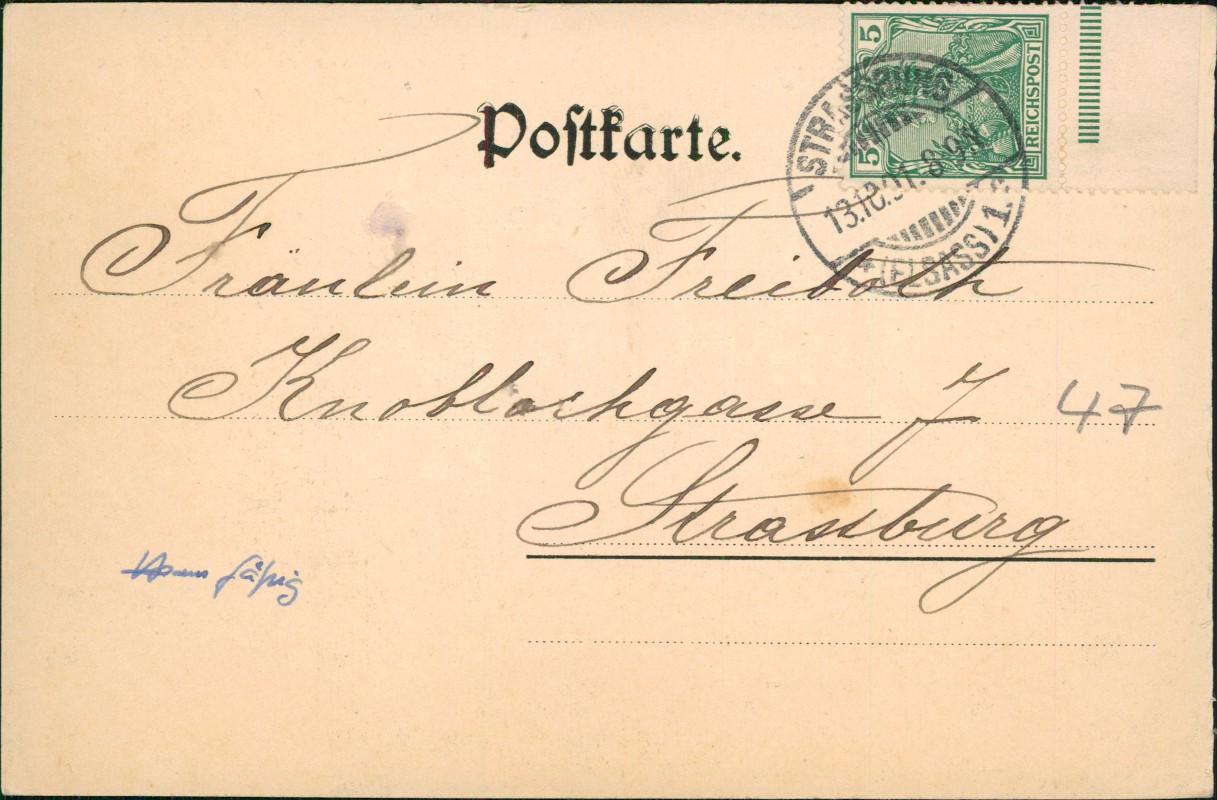 Postkarte.
5
5
REICHSPOST
STRASSBURG
(ELSASS) 1.
Fräulein Freitoch
Knoblochgasse 7
47
Strassburg